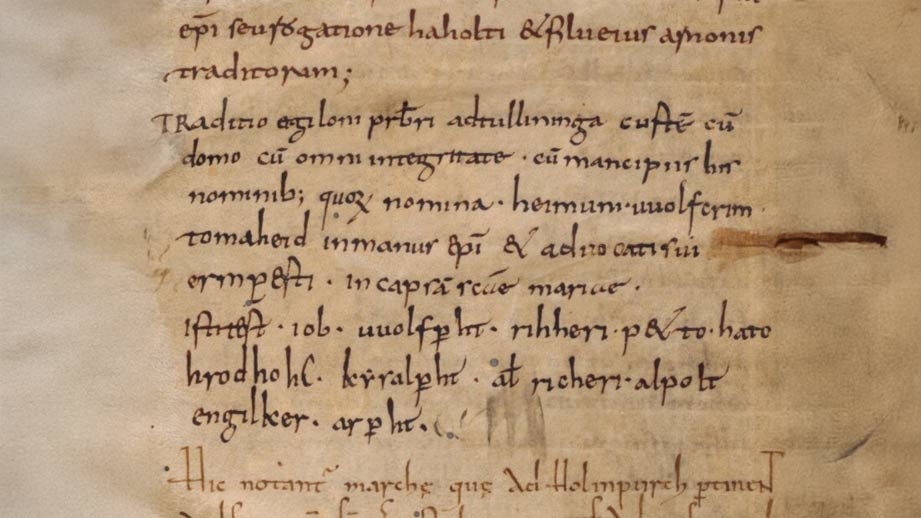 epī seu rogatione haholti & fil eius arnonis
traditorum;
TRaditio egiloni prƀri adtullininga custē cū
domo cū omni integritate · cū mancipiis his
nominib; quoꝝ nomina · heimuni · uuolferim
tomaheid inmanus epī & aduocati sui
ermꝑesti · incapsā scē mariae ·
isti test · iob · uuolfꝑht · rihheri · p&to · hato
hrodholf · keralꝑht · aƚ richeri · alpolt
engilker · arꝑht ·
Hic notant marchę quę Ad Holinpurch ꝑtinent